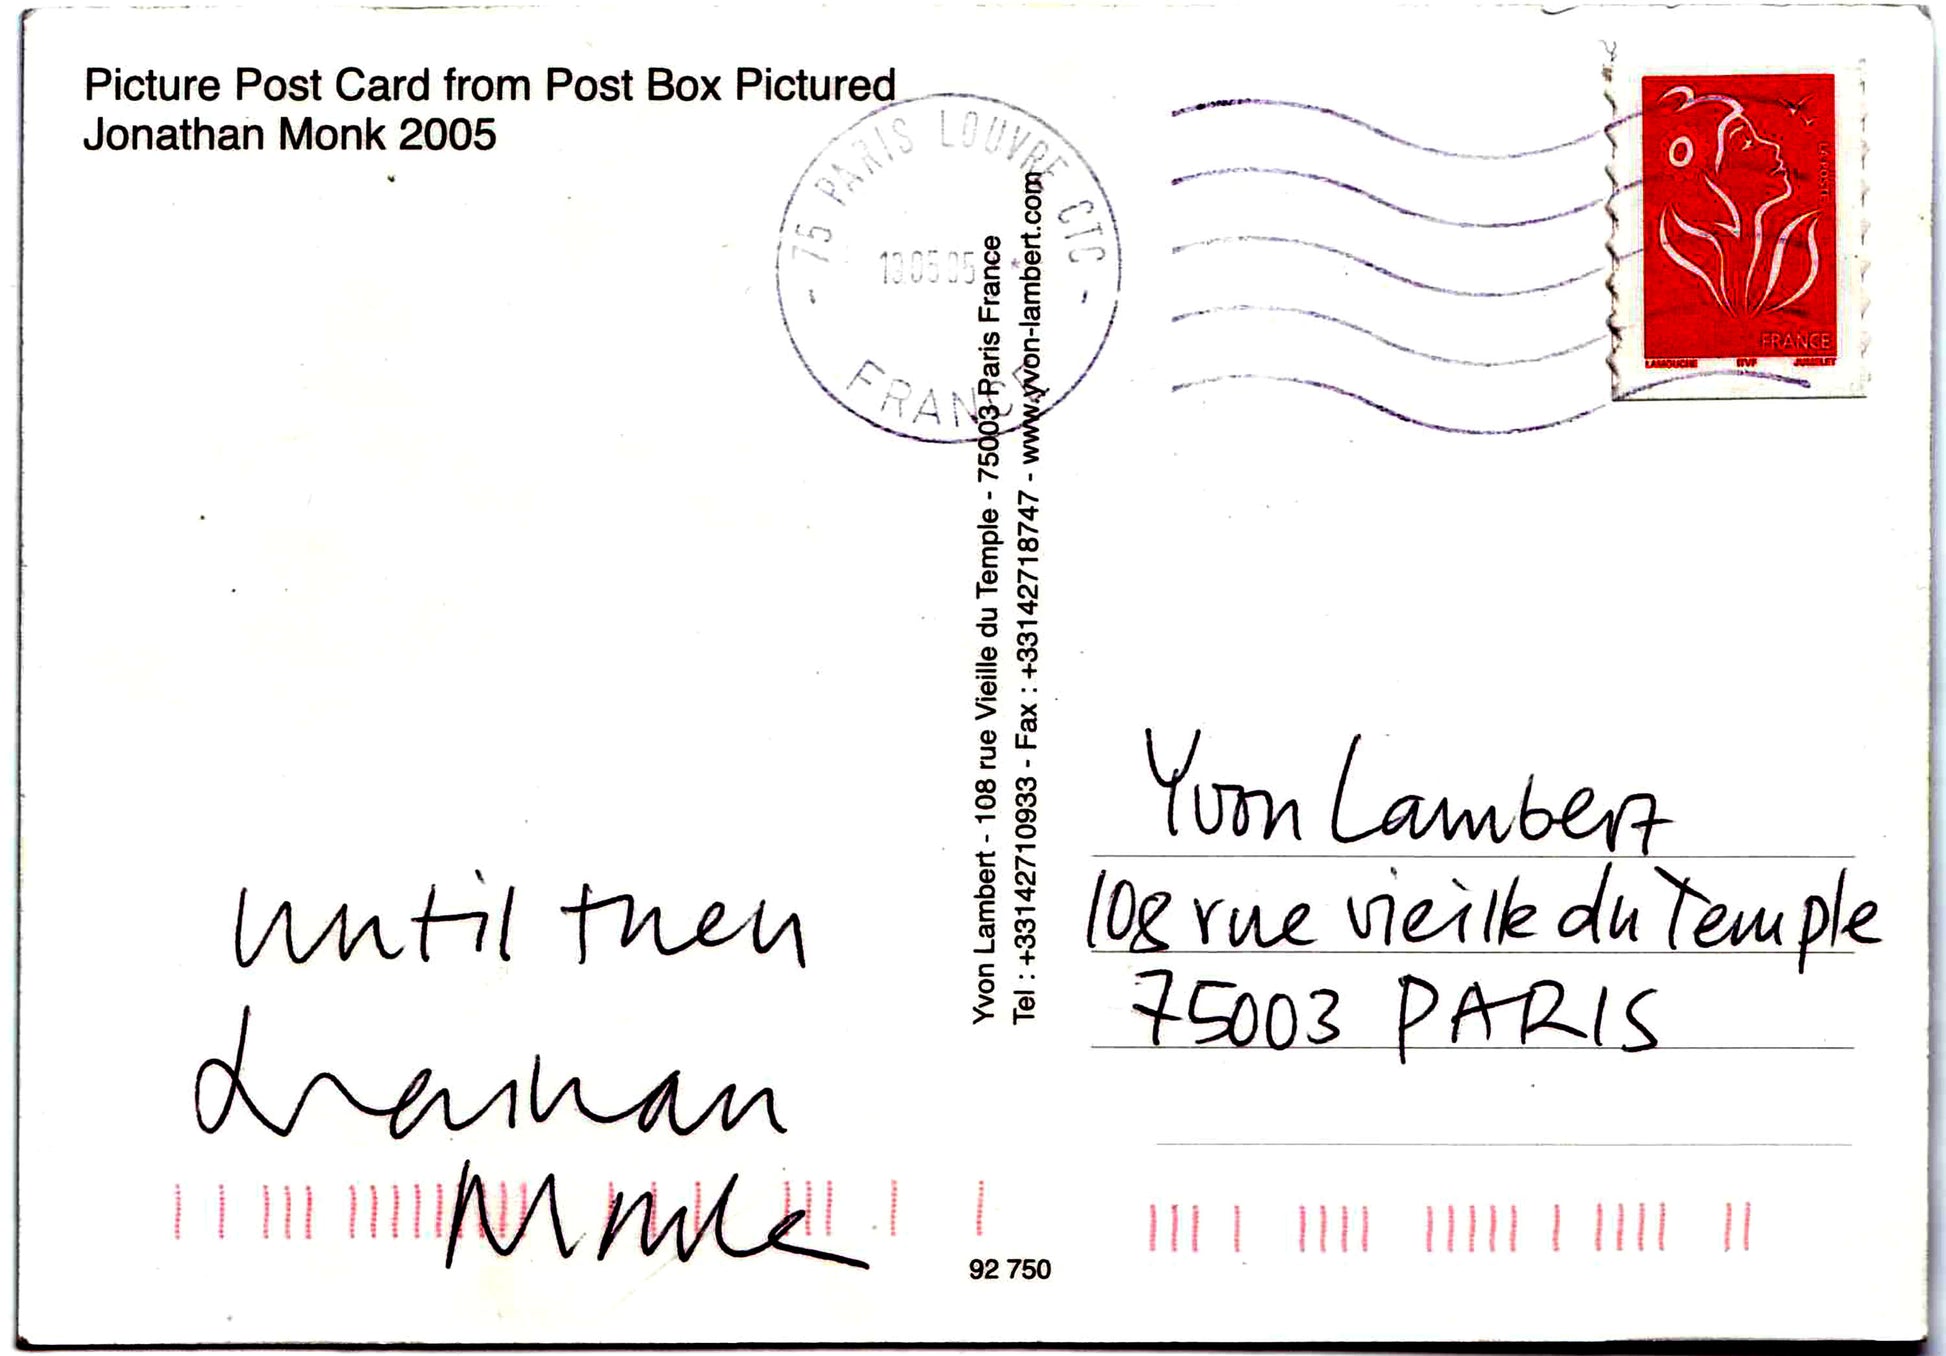 Picture Post Card from Post Box Pictured
Jonathan Monk 2005
75 PARIS LOUVRE CTC
05 05
FRANCE
LA POSTE
FRANCE
LAMOUCHE ITVF JUMELET
Yvon Lambert - 108 rue Vieille du Temple - 75003 Paris France
Tel : +33142710933 - Fax : +33142718747 - www.yvon-lambert.com
until then
Jonathan
Monk
Yvon Lambert
108 rue vieille du Temple
75003 PARIS
92 750